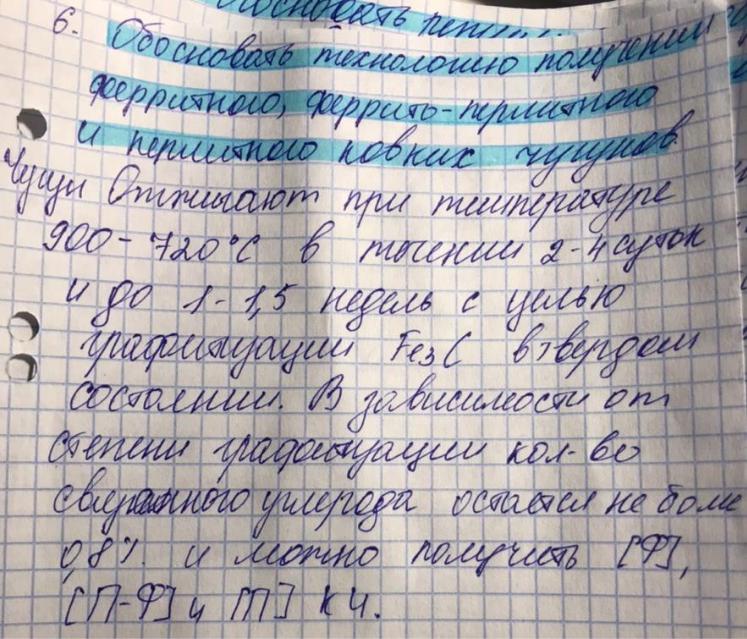 обосновать
6. Обосновать технологию получения
ферритного, феррито-перлитного
и перлитного ковких чугунов.
Чугун Отжигают при температуре
900-720°С в течении 2-4 суток
и до 1-1,5 недель с целью
графитизации Fe3C в твердом
состоянии. В зависимости от
степени графитизации кол-во
связанного углерода остается не более
0,8%. и можно получить [Ф],
[П-Ф] и [П] КЧ.